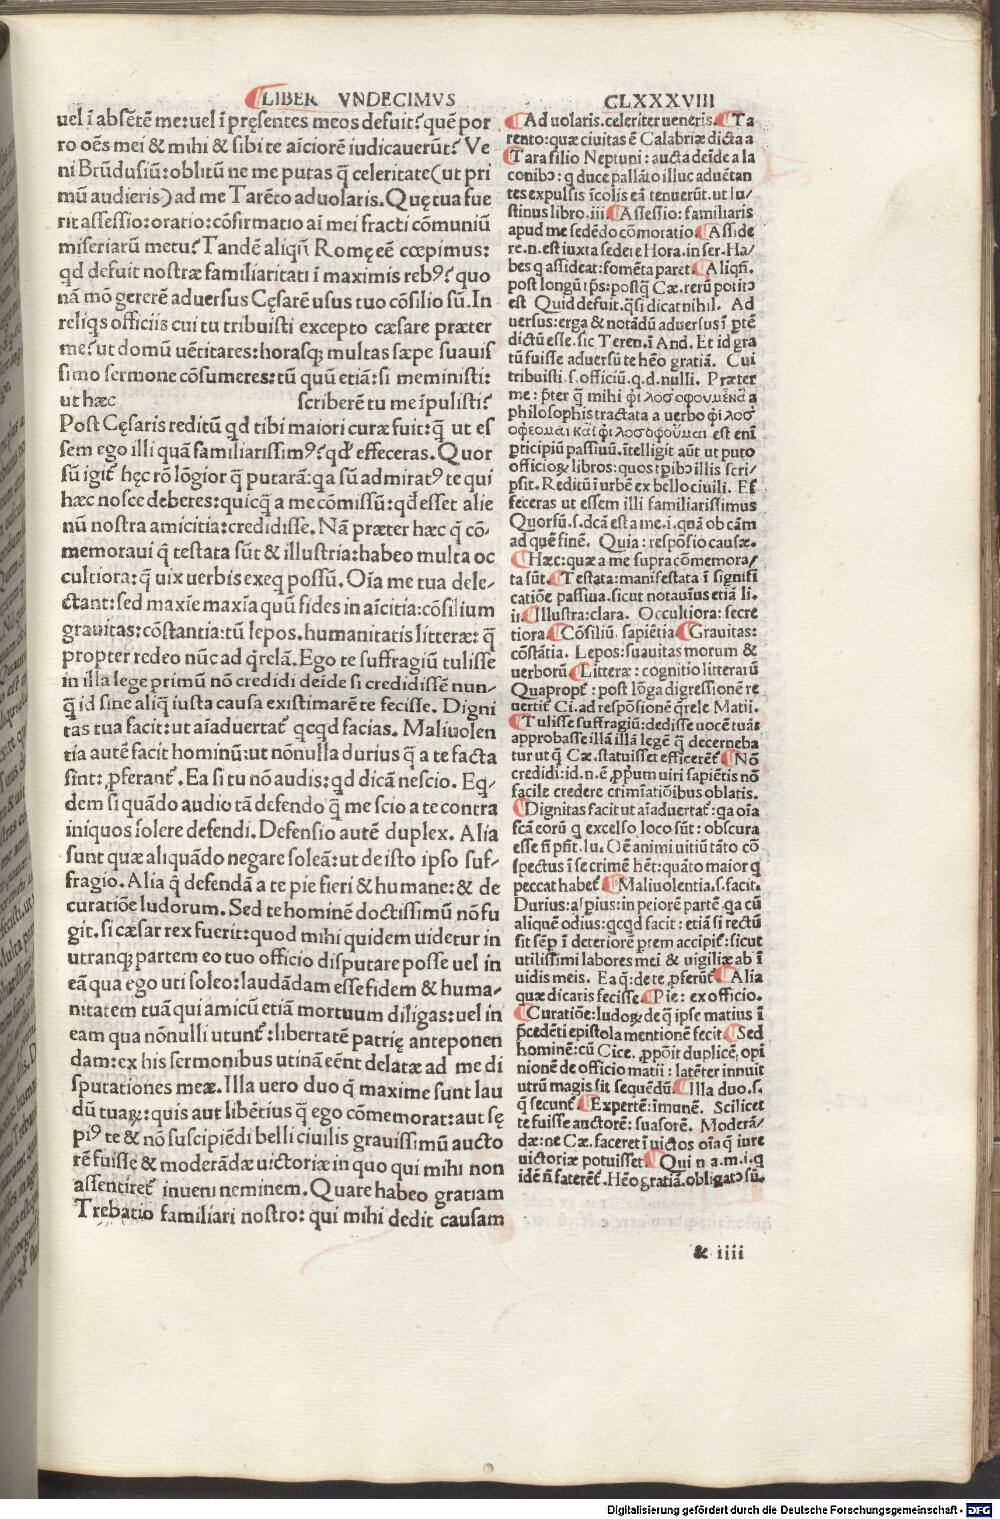 LIBER VNDECIMVS
CLXXXVIII
uel ī absētē me: uel ī pręsentes meos defuit? quē por
ro oēs mei & mihi & sibi te aīciorē iudicauerūt? Ve
ni Brūdusiū: oblitū ne me putas q̄ celeritate (ut pri
mū audieris) ad me Tarēto aduolaris. Quę tua fue
rit assessio: oratio: cōfirmatio aī mei fracti cōmuniū
miseriarū metu? Tandē aliqñ Romę eē cœpimus:
qd defuit nostræ familiaritati ī maximis reb⁹? quo
nā mō gererē aduersus Cęsarē usus tuo cōsilio sū. In
reliqs officiis cui tu tribuisti excepto cæsare præter
me? ut domū uētitares: horasq; multas sæpe suauis
simo sermone cōsumeres: tū quū etiā: si meministi:
ut hæc scriberē tu me īpulisti?
Post Cęsaris reditū qd tibi maiori curæ fuit: q̄ ut es
sem ego illi quā familiarissim⁹? qđ effeceras. Quor
sū igit̄ hęc rō lōgior q̄ putarā: qa sū admirat⁹ te qui
hæc nosce deberes: quicq̄ a me cōmissū: qđ esset alie
nū nostra amicitia: credidisse. Nā præter hæc q̄ cō-
memoraui q̄ testata sūt & illustria: habeo multa oc
cultiora: q̄ uix uerbis exeq possū. Oīa me tua dele-
ctant: sed maxīe maxīa quū fides in aīcitia: cōsilium
grauitas: cōstantia: tū lepos. humanitatis litteræ: q̄
propter redeo nūc ad q̄relā. Ego te suffragiū tulisse
in illa lege primū nō credidi deīde si credidissē nun-
q̄ id sine aliq̄ iusta causa existimarē te fecisse. Digni
tas tua facit: ut aīaduertat̄ qcqd facias. Maliuolen
tia autē facit hominū: ut nōnulla durius q̄ a te facta
sint: ꝓferant̄. Ea si tu nō audis: qd dicā nescio. Eq-
dem si quādo audio tā defendo q̄ me scio a te contra
iniquos solere defendi. Defensio autē duplex. Alia
sunt quæ aliquādo negare soleā: ut de isto ipso suf-
fragio. Alia q̄ defendā a te pie fieri & humane: & de
curatiōe ludorum. Sed te hominē doctissimū nō fu
git. si cæsar rex fuerit: quod mihi quidem uidetur in
utranq; partem eo tuo officio disputare posse uel in
eā qua ego uti soleo: laudādam esse fidem & huma-
nitatem tuā qui amicū etiā mortuum diligas: uel in
eam qua nōnulli utunt̄: libertatē patrię anteponen
dam: ex his sermonibus utinā eēnt delatæ ad me di
sputationes meæ. Illa uero duo q̄ maxime sunt lau
dū tuaꝝ: quis aut libētius q̄ ego cōmemorat: aut sę
pi⁹ te & nō suscipiēdi belli ciuilis grauissimū aucto
rē fuisse & moderādæ uictoriæ in quo qui mihi non
assentiret̄ inueni neminem. Quare habeo gratiam
Trebatio familiari nostro: qui mihi dedit causam
Aduolaris. celeriter ueneris. Ta
rento: quæ ciuitas ē Calabriæ dicta a
Tara filio Neptuni: aucta deīde a la
conibꝰ: q duce pallāto illuc aduētan
tes expulsis īcolis eā tenuerūt. ut Iu-
stinus libro. iii. Assessio: familiaris
apud me sedēdo cōmoratio. Asside
re. n. est iuxta sedere Hora. in ser. Ha-
bes q assideat: fomēta paret. Aliqñ.
post longū tp̄s: postq̄ Cæ. rerū potitꝰ
est Quid defuit. q̄si dicat nihil. Ad
uersus: erga & notādū aduersus ī ptē
dictū esse. sic Teren. ī And. Et id gra
tū fuisse aduersū te hēo gratiā. Cui
tribuisti. s. officiū. q. d. nulli. Præter
me: p̄ter q̄ mihi φιλοσοφουμενα a
philosophis tractata a uerbo φιλοσ
οφεομαι και φιλοσοφουμαι est enī
p̄ticipiū passiuū. ītelligit aūt ut puto
officioꝝ libros: quos tp̄ibꝰ illis scri-
psit. Reditū ī urbē ex bello ciuili. Ef
feceras ut essem illi familiarissimus
Quorsū. s. dcā est a me. i. quā ob cām
ad quē finē. Quia: respōsio causæ.
Hæc: quæ a me supra cōmemora-
ta sūt. Testata: manifestata ī signifi
catiōe passiua. sicut notauius etiā li.
ii. Illustra: clara. Occultiora: secre
tiora. Cōsiliū. sapiētia Grauitas:
cōstātia. Lepos: suauitas morum &
uerborū. Litteræ: cognitio litterarū
Quapropt̄: post lōga digressionē re
uertit̄ Ci. ad respōsionē q̄rele Matii.
Tulisse suffragiū: dedisse uocē tuā:
approbasse illā illā legē q̄ decerneba
tur ut q̄ Cæ. statuisset efficerēt̄. Nō
credidi: id. n. ē ꝓp̄um uiri sapiētis nō
facile credere crimīatiōibus oblatis.
Dignitas facit ut aīaduertat̄: qa oīa
fcā eorū q excelso loco sūt: obscura
esse ñ pñt. Iu. Oē animi uitiū tāto cō
spectus ī se crimē hēt: quāto maior q
peccat habet̄ Maliuolentia. s. facit.
Durius: asꝑius: in peiorē partē. qa cū
aliquē odius: qcqd facit: etiā si rectū
sit sēp ī deteriorē p̄tem accipit̄: sicut
utilissimi labores mei & uigiliæ ab ī
uidis meis. Ea q̄: de te ꝓferūt̄ Alia
quæ dicaris fecisse. Pie: ex officio.
Curatiōe: ludoꝝ de q̄ ipse matius ī
p̄cedēti epistola mentionē fecit. Sed
hominē: cū Cice. ꝓpōit duplicē, opi
nionē de officio matii: latēter innuit
utrū magis sit sequēdū. Illa duo. s.
q̄ secunt̄. Expertē: īmunē. Scilicet
te fuisse auctorē: suasorē. Moderā-
dæ: ne Cæ. faceret ī uictos oīa q̄ iure
uictoriæ potuisset. Qui n a. m. i. q
idē ñ faterēt̄. Hēo gratiā. obligatꝰ sū.
& iiii
Digitalisierung gefördert durch die Deutsche Forschungsgemeinschaft - DFG